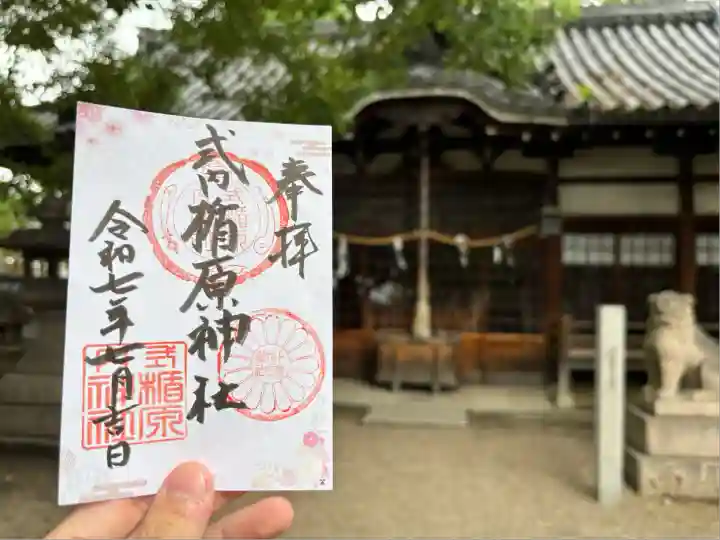 奉拝
式内楯原神社
令和七年七月吉日
式楯原